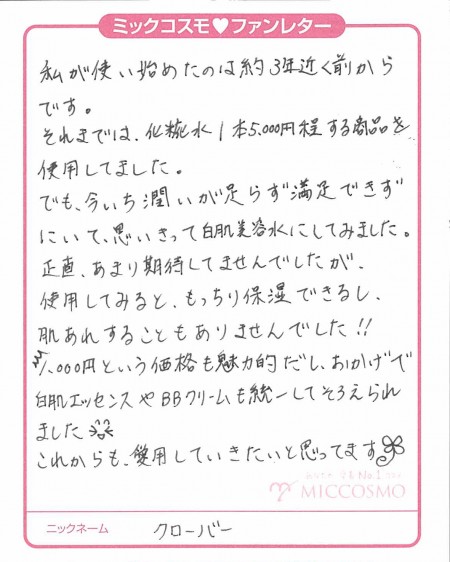 ミックコスモ♥ファンレター
私が使い始めたのは約3年近く前から
です。
それまでは、化粧水1本5.000円程する商品を
使用してました。
でも、今いち潤いが足らず満足できず
にいて、思いきって白肌美容水にしてみました。
正直、あまり期待してませんでしたが、
使用してみると、もっちり保湿できるし、
肌あれすることもありませんでした!!
1.000円という価格も魅力的だし、おかげで
白肌エッセンスやBBクリームも統一してそろえられ
ました
これからも、愛用していきたいと思ってます
No.1
MICCOSMO
ニックネーム
クローバー